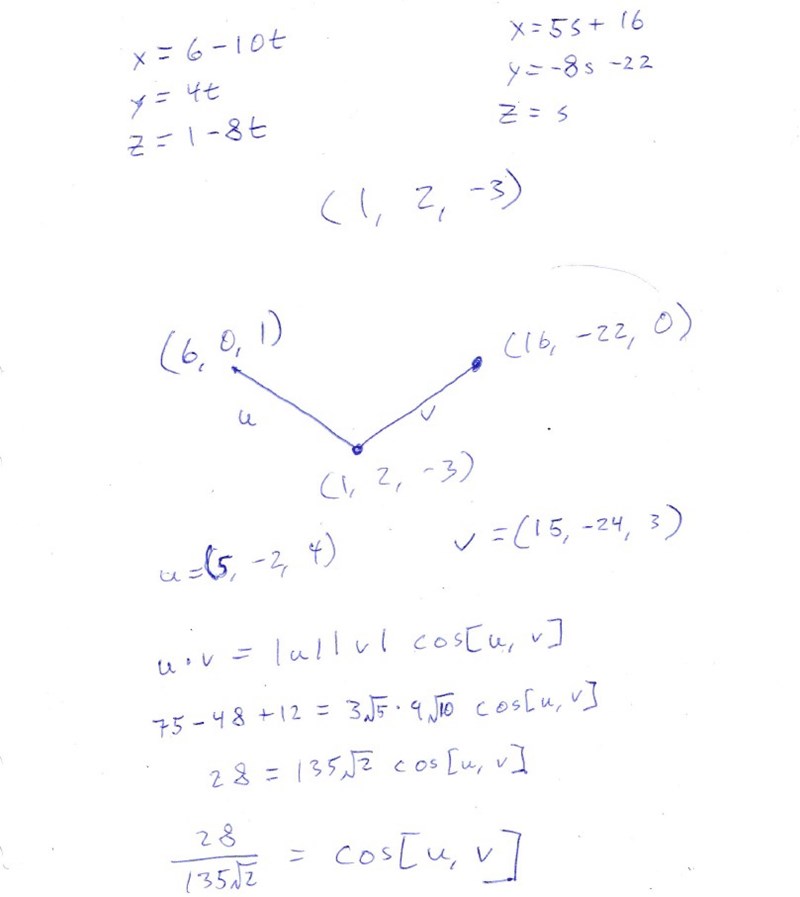 x = 6 - 10t
y = 4t
z = 1 - 8t
x = 5s + 16
y = -8s - 22
z = s
(1, 2, -3)
(6, 0, 1)
(16, -22, 0)
u
v
(1, 2, -3)
u = (5, -2, 4)
v = (15, -24, 3)
u · v = |u| |v| cos[u, v]
75 - 48 + 12 = 3√5 · 9√10 cos[u, v]
28 = 135√2 cos[u, v]
28 / 135√2 = cos[u, v]